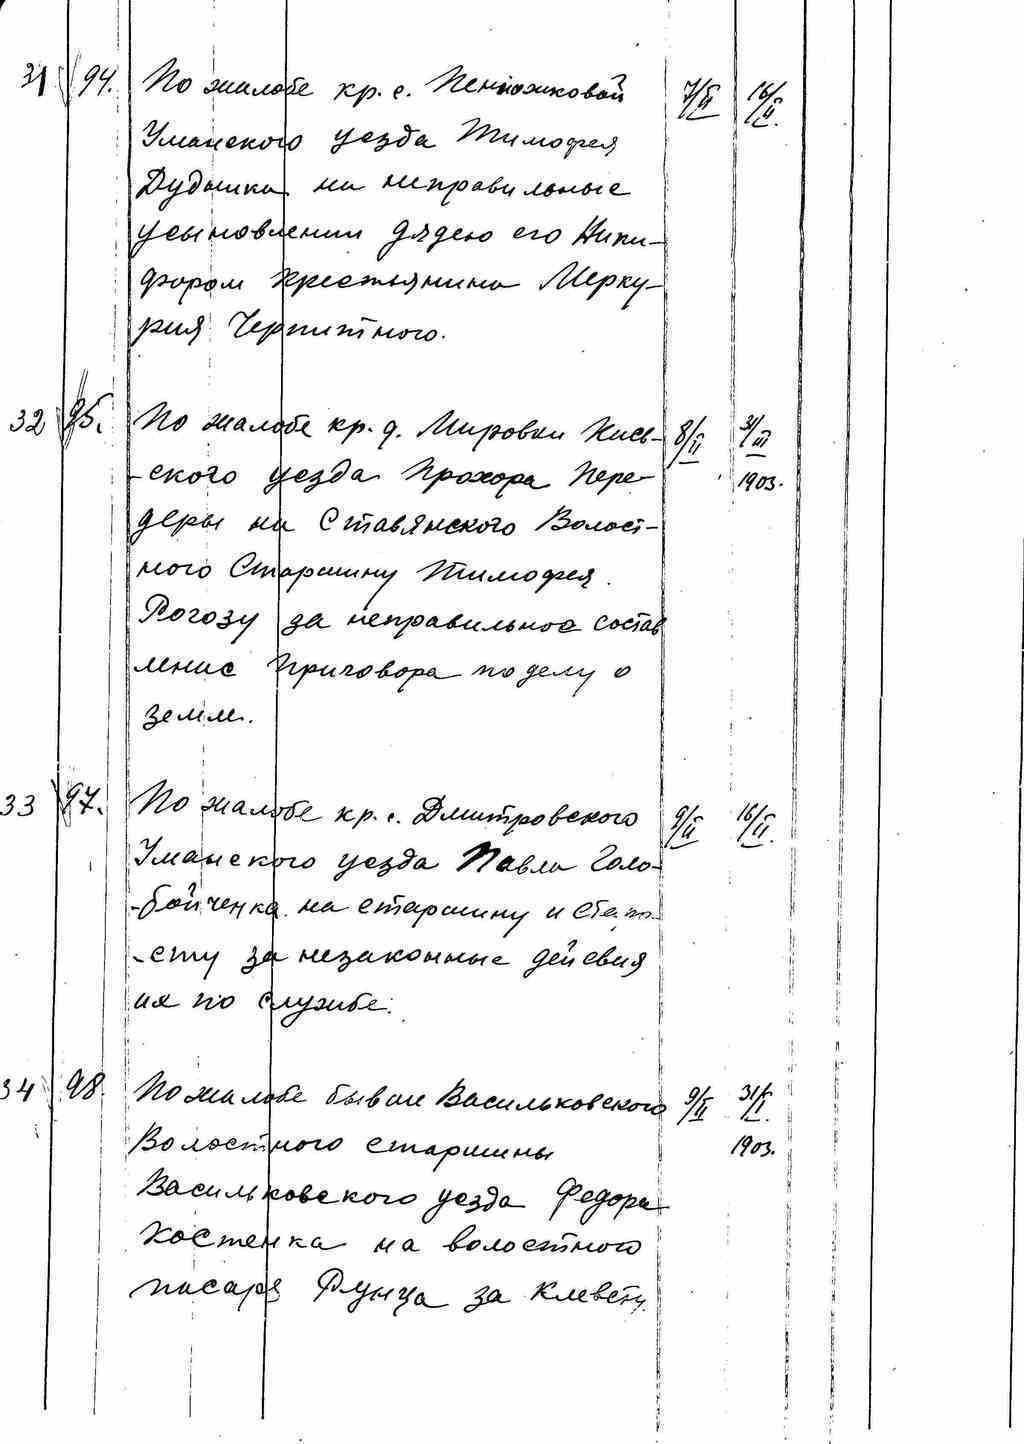 31 94. По жалобе кр. с. Пеньожковой 7/II 16/II.
Уманского уезда Тимофея
Дудника на неправильные
усыновлении дядею его Ники-
фором крестьянина Мерку-
рия Черпитного.
32 95. По жалобе кр. д. Мировки Киев- 8/II 31/III
-ского уезда Прохора Пере- 1903.
деры на Ставянского Волост-
ного Старшину Тимофея
Рогозу за неправильное состав
ление приговора по делу о
земле.
33 97. По жалобе кр. с. Дмитровского 9/II 16/II.
Уманского уезда Павла Голо-
-бойченка на старшину и старо-
-сту за незаконные дейсвия
их по службе.
34 98. По жалобе бывш Васильковского 9/II 31/I.
Волостного старшины 1903.
Васильковского уезда Федора
Костенка на волостного
писаря Рунца за клевету.